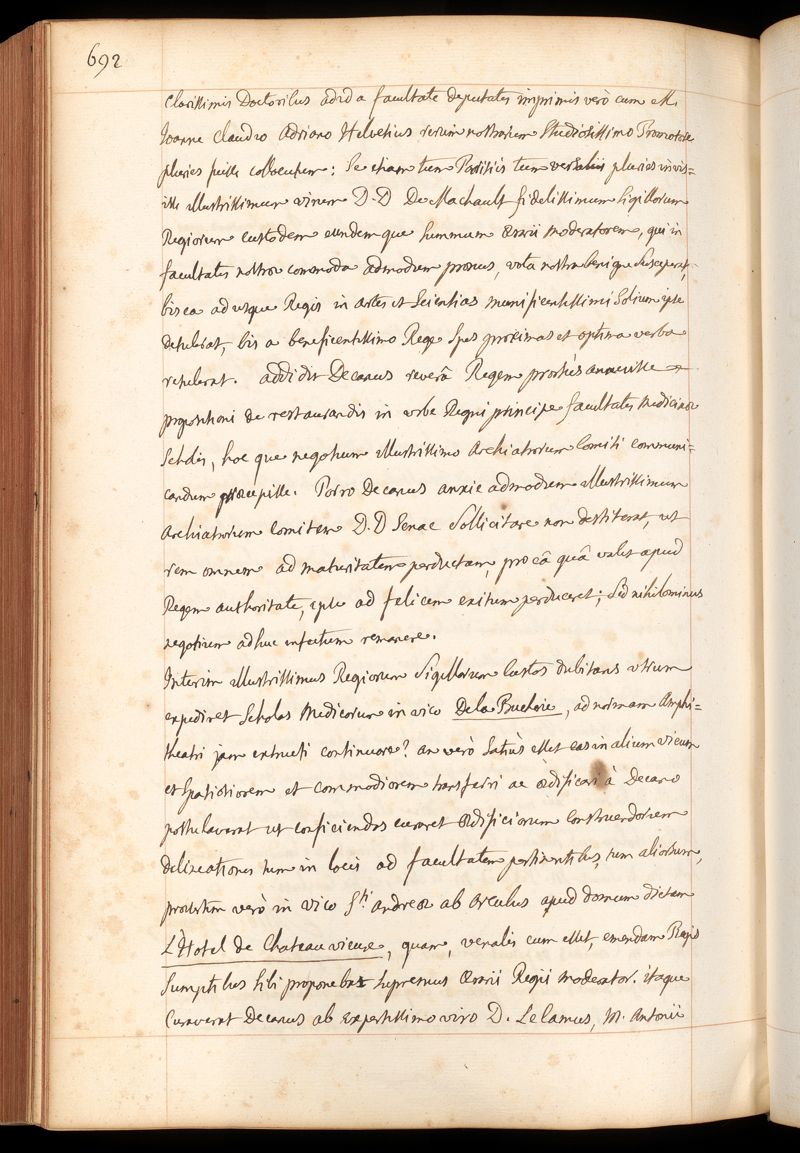 692
Clarissimis Doctoribus ad id a facultate deputatis imprimis verò cum M.
Joanne Claudio Adriano Helvetius rerum nostrarum Studiosissimo Promotore
pluries fuisse collocutum: Se etiam tum Parisiis tum versaliis pluries invis=
isse illustrissimum virum D.D De Machault fidelissimum Sigillorum
Regiorum Custodem eundemque summum Ærarii moderatorem, qui in
facultatis nostræ commoda admodum pronus, vota nostra benigne Susceperat,
bis ea ad usque Regis in artes et Scientias munificentissimi Solium ipse
detulerat, bis a beneficentissimo Rege Spes proximas et optima verba
retulerat. addidit Decanus reverâ Regem prorsùs annuisse
propositioni de restaurandis in urbe Regni principe facultatis Medicinæ
Scholis, hoc que negotium illustrissimo Archiatrorum Comiti communi=
candum præcepisse. Porro Decanus anxie admodum illustrissimum
Archiatrorum Comitem D.D Senac Sollicitare non destiterat, ut
rem omnem ad maturitatem perductam, pro eâ quâ valet apud
Regem authoritate, ipse ad felicem exitum perduceret; Sed nihilominus
negotium adhuc infectum remanere.
Interim illustrissimus Regiorum Sigillorum Custos dubitans utrum
expediret Scholas Medicorum in vico De la Bucherie, ad normam Amphi=
theatri jam extructi continuare? an verò Satiùs esset eas in alium vicum
et Spatiosiorem et commodiorem transferri ac ædificari à Decano
postulaverat ut conficiendas curaret ædificiorum construendorum
delineationes tum in locis ad facultatem pertinentibus, tum aliorsum,
præsertim verò in vico Sti Andreæ ab Arcubus apud domum dictam
L'Hotel de Chateauvieux, quam, venalis cum esset, emendam Regis
Sumptibus sibi proponebat Supremus Ærarii Regii moderator. itaque
Curaverat Decanus ab expertissimo viro D. Le Camus, M. Antonii